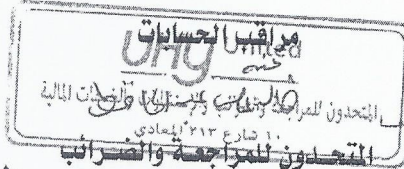 مراقب الحسابات
UHY United
المتحدون للمراجعة والضرائب والإستشارات والخدمات المالية
١٠ شارع ٢١٣ المعادي
المتحدون للمراجعة والضرائب